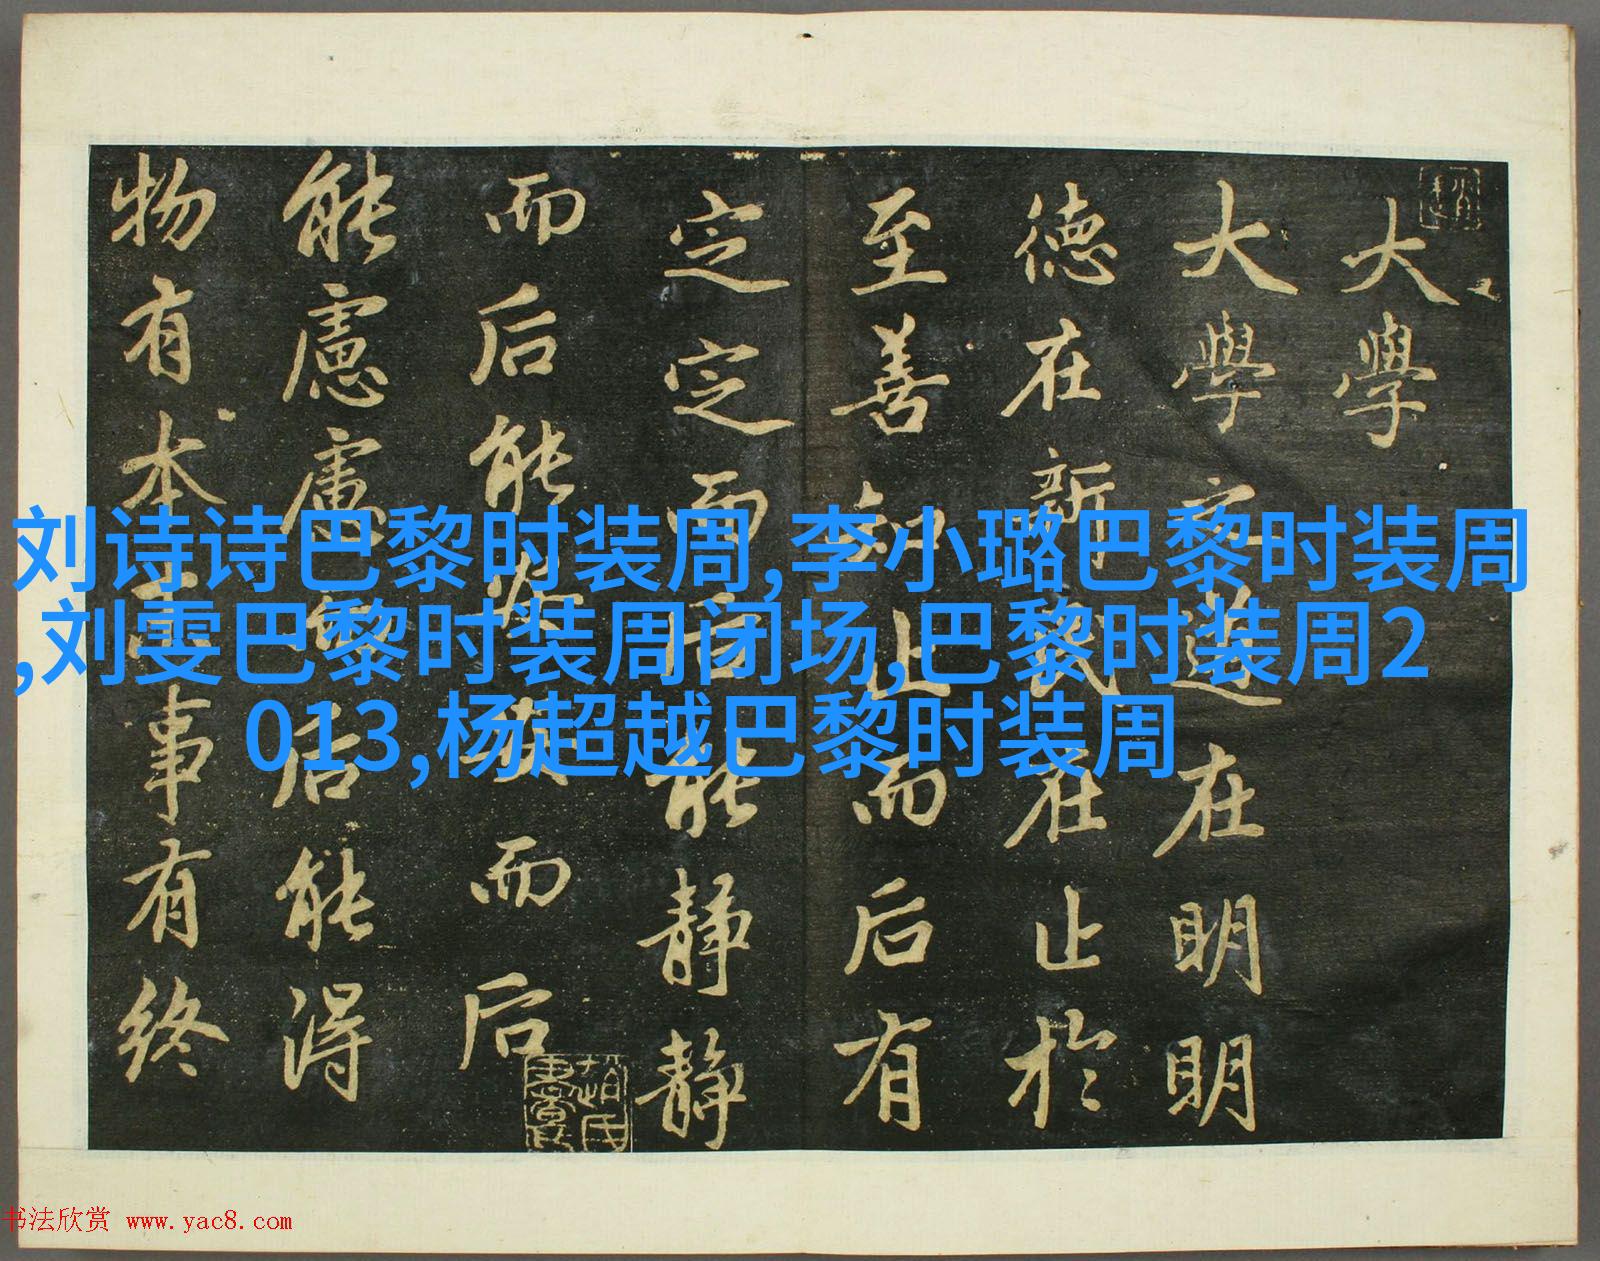 大學
大學之道在明明
德在新民在止於
至善知止而后有
定定而后能静静
而后能安安而后
能慮慮而后能得
物有本末事有終
刘诗诗巴黎时装周,李小璐巴黎时装周
,刘雯巴黎时装周闭场,巴黎时装周2
013,杨超越巴黎时装周
书法欣赏 www.yac8.com